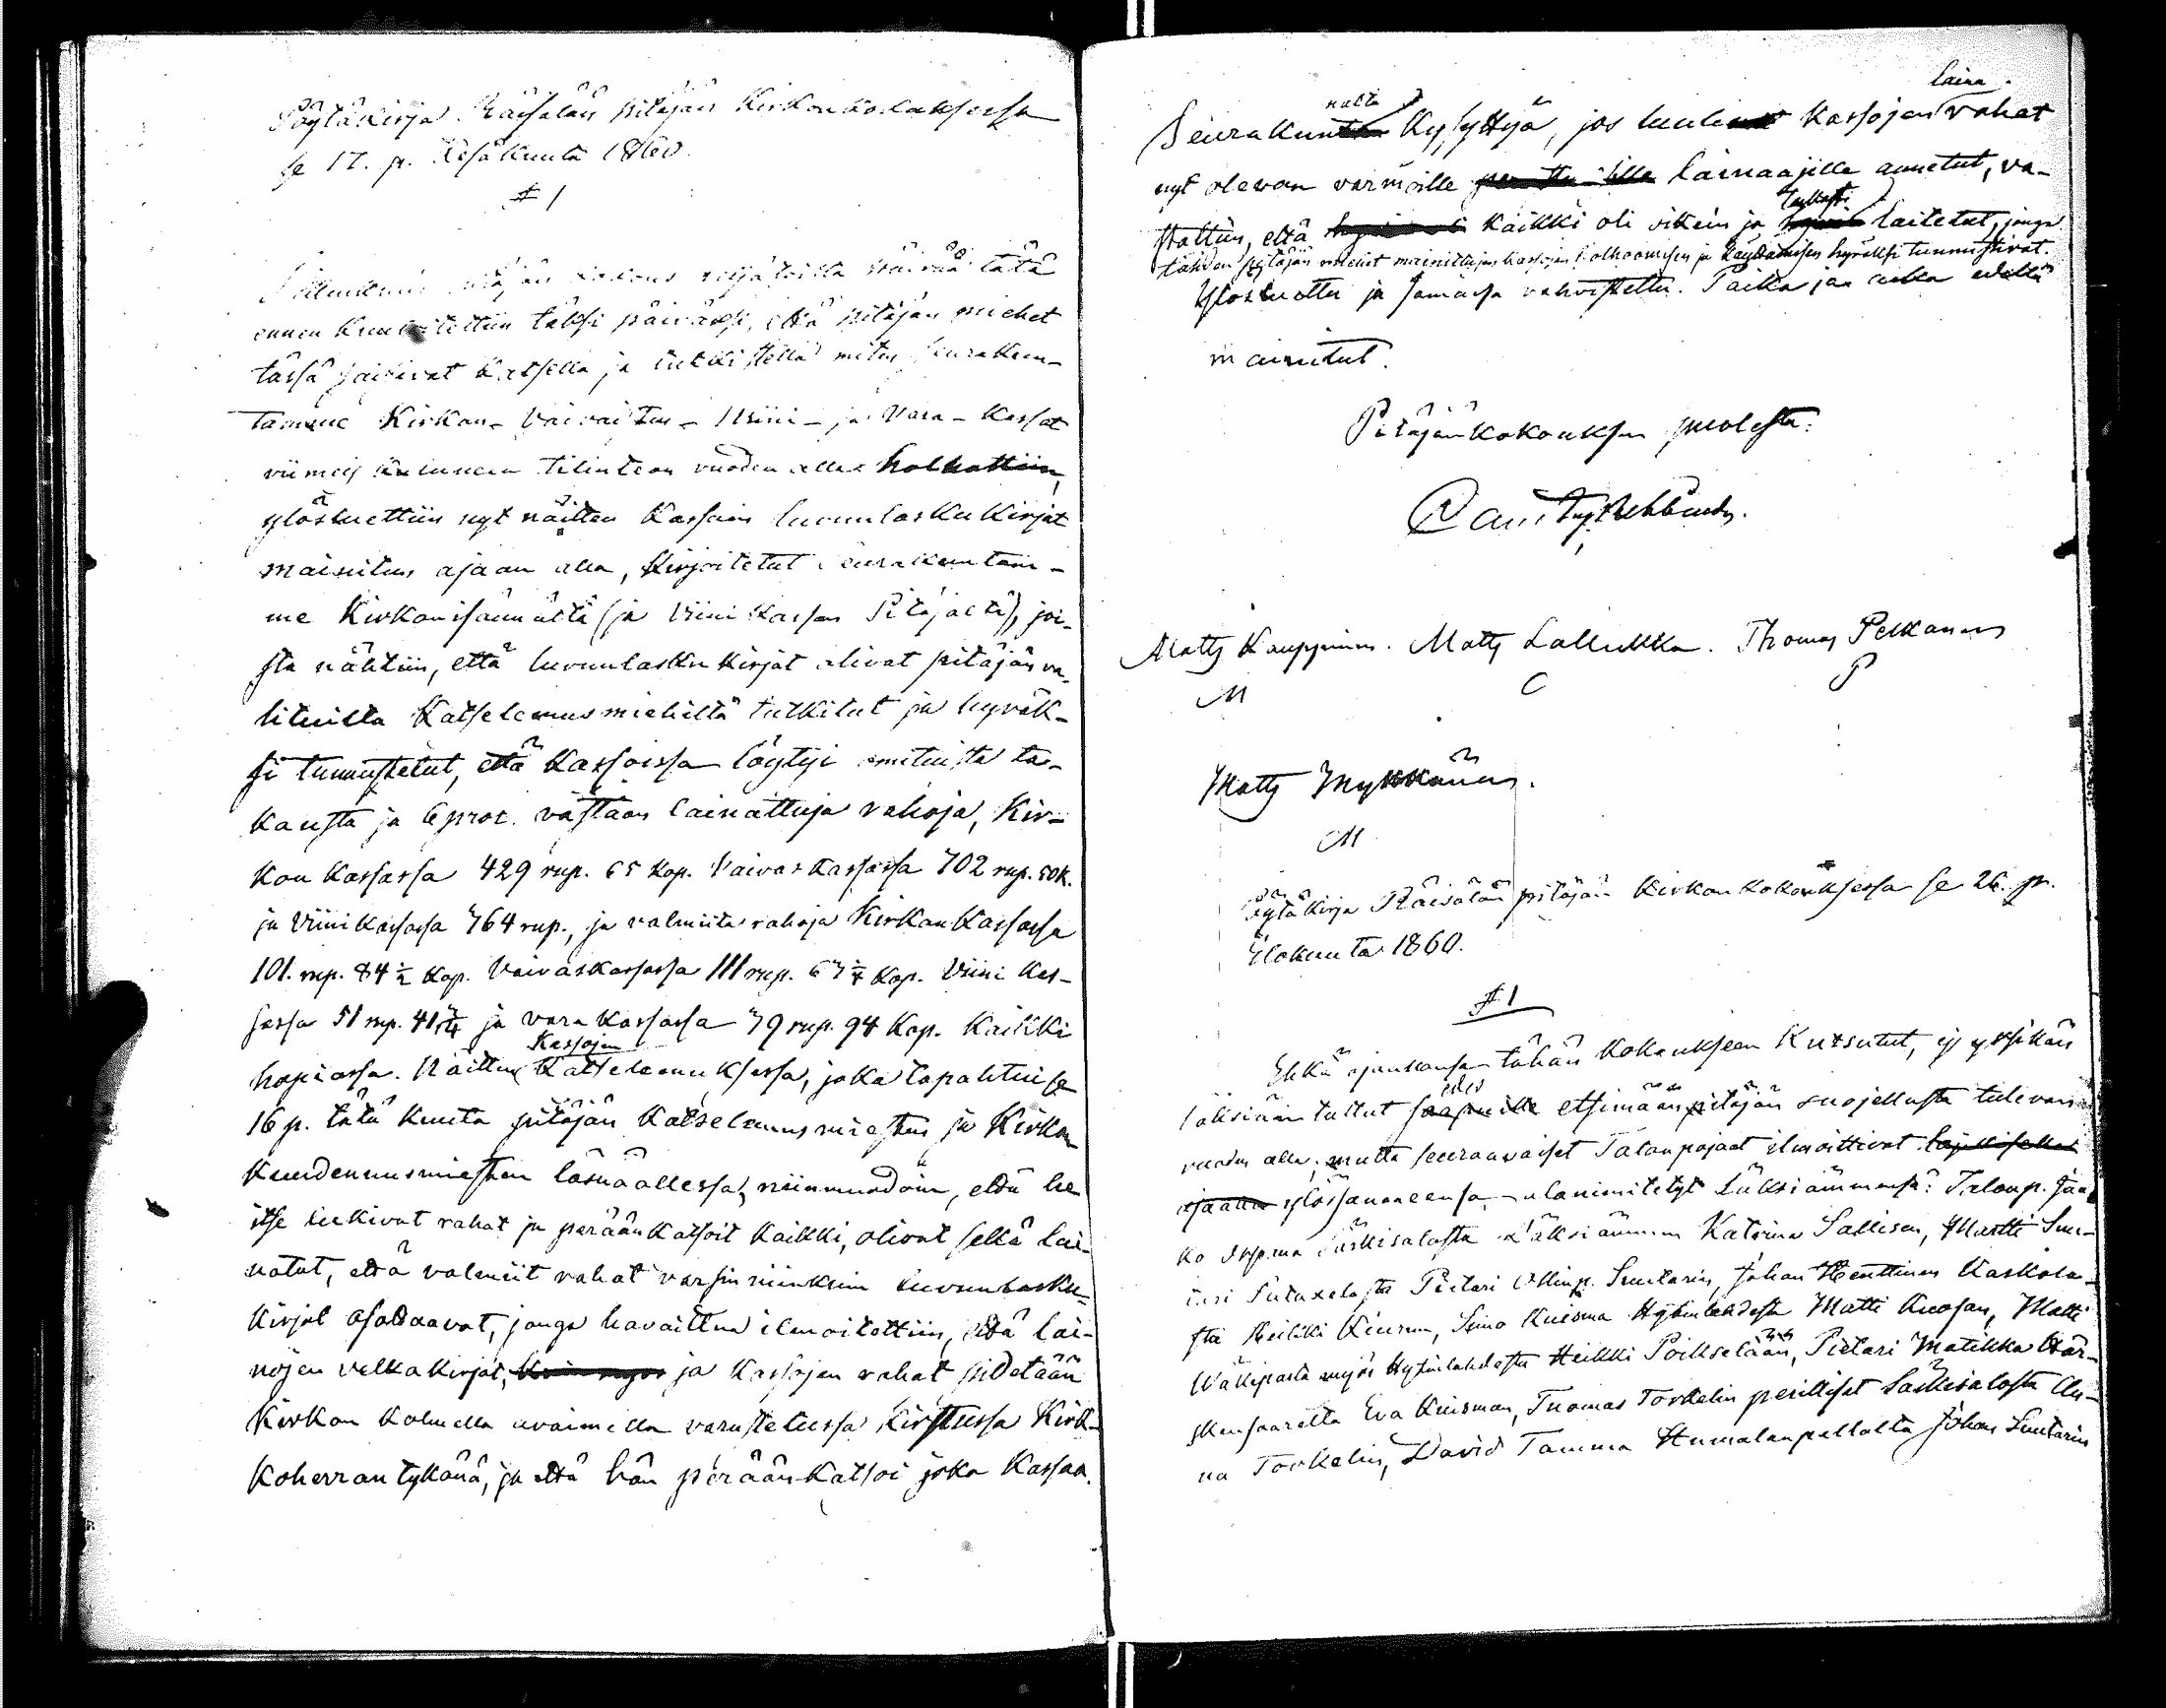 Pöytäkirja Räisälän pitäjän Kirkonkokouksessa
se 17. p. Kesäkuuta 1860.
§ 1
kokous neljätoista päivää tätä
ennen kuulutettiin täksi päiväksi, että pitäjän miehet
tässä saisivat katsella ja tutkistella miten seurakun-
tamme Kirkon- Vaivaisten- Viini- ja Vara- kassat
viimeis kuluneen tilinteon vuoden alla holhottiin,
ylösluettiin nyt näitten kassain luvunlasku kirjat
mainitun ajaan alla, kirjoitetut seurakuntam-
me Kirkonisännältä (ja Viini kassan Pitäjältä), joi-
sta nähtiin, että luvunlasku kirjat olivat pitäjän va-
lituilta katselemusmiehiltä tutkitut ja hyväk-
si tunnustetut, että kassoissa löytyi omituista ta-
kausta ja 6 proc. vastaan lainattuja rahoja, Kir-
kon kassassa 429 rup. 65 kop. Vaivaskassassa 702 rup. 50 k.
ja Viinikassassa 764 rup., ja valmiita rahoja Kirkon kassassa
101. rup. 84 ½ kop. Vaivaskassassa 111 rup. kop. Viini kas-
sassa 51 rup. ja varakassassa 79 rup. 94 kop. kaikki
Kassojen
hopiassa. Näitten Katselemuksessa, joka tapahtui se
16 p. tätä kuuta pitäjän katselemusmiesten ja Kirkon
kuudennusmiesten läsnä ollessa, niinmuodoin, että he
itse lukivat rahat ja peräänkatsoit kaikki, olivat sekä lai-
natut, että valmiit rahat varsin niinkuin luvunlasku-
kirjat osottavat, jonga havaittua ilmoitettiin, että lai-
nojen velkakirjat, ja kassojen rahat pidetään
Kirkon kolmella avaimella varustetussa Kirstussa Kirk-
koherran tykönä, ja että hän peräänkatsoi joka kassan.
laina
nalta
Seurakunta kysyttyä, jos luuli kassojen rahat
nyt olevan varmoille lainaajille annetut, va-
stattiin, että kaikki oli oikein ja laitetut, jonga
tähden pitäjän miehet mainittujen kassojen holhoomisen ja käyttämisen hyväksi tunnustivat.
Ylösluettu ja samassa vahvistettu. Paikka ja aika edellä
mainitut.
Pitäjänkokouksen puolesta:
Matts Kauppinen. Matts Lallukka. Thomas Pelkonen
M C P
Matts Mykkänen.
M
Pöytäkirja Räisälän pitäjän Kirkon kokouksessa se 26. p.
Elokuuta 1860.
§ 1
Ehkä ajankansa tähän kokoukseen kutsutut, ej yksikän
edes
läksiään tullut etsimään pitäjän suojellusta tulevan
vuoden alla, mutta seuraavaiset Talonpojaat ilmoittivat
ylössanoneensa alanimitetyt Läksiämmensä: Talonp. Jaa-
ko Särkisalosta Läksiämmen Katrina Sallisen, Martti Suu-
Pietari Ollinp. Suutarin, Johan Henttinen Kaskola-
sta Heikki Kiurun, Simo Kuisma Hytinlahdesta Matti Kuosan, Matti
myös Hytinlahdesta Heikki Poikselään, Pietari Matikka Här-
skensaarelta Eva Kuisman, Tuomas Torkelin perilliset Särkisalosta An-
na Torkelin, David Tamma Humalanpellolta Johan Suutarin